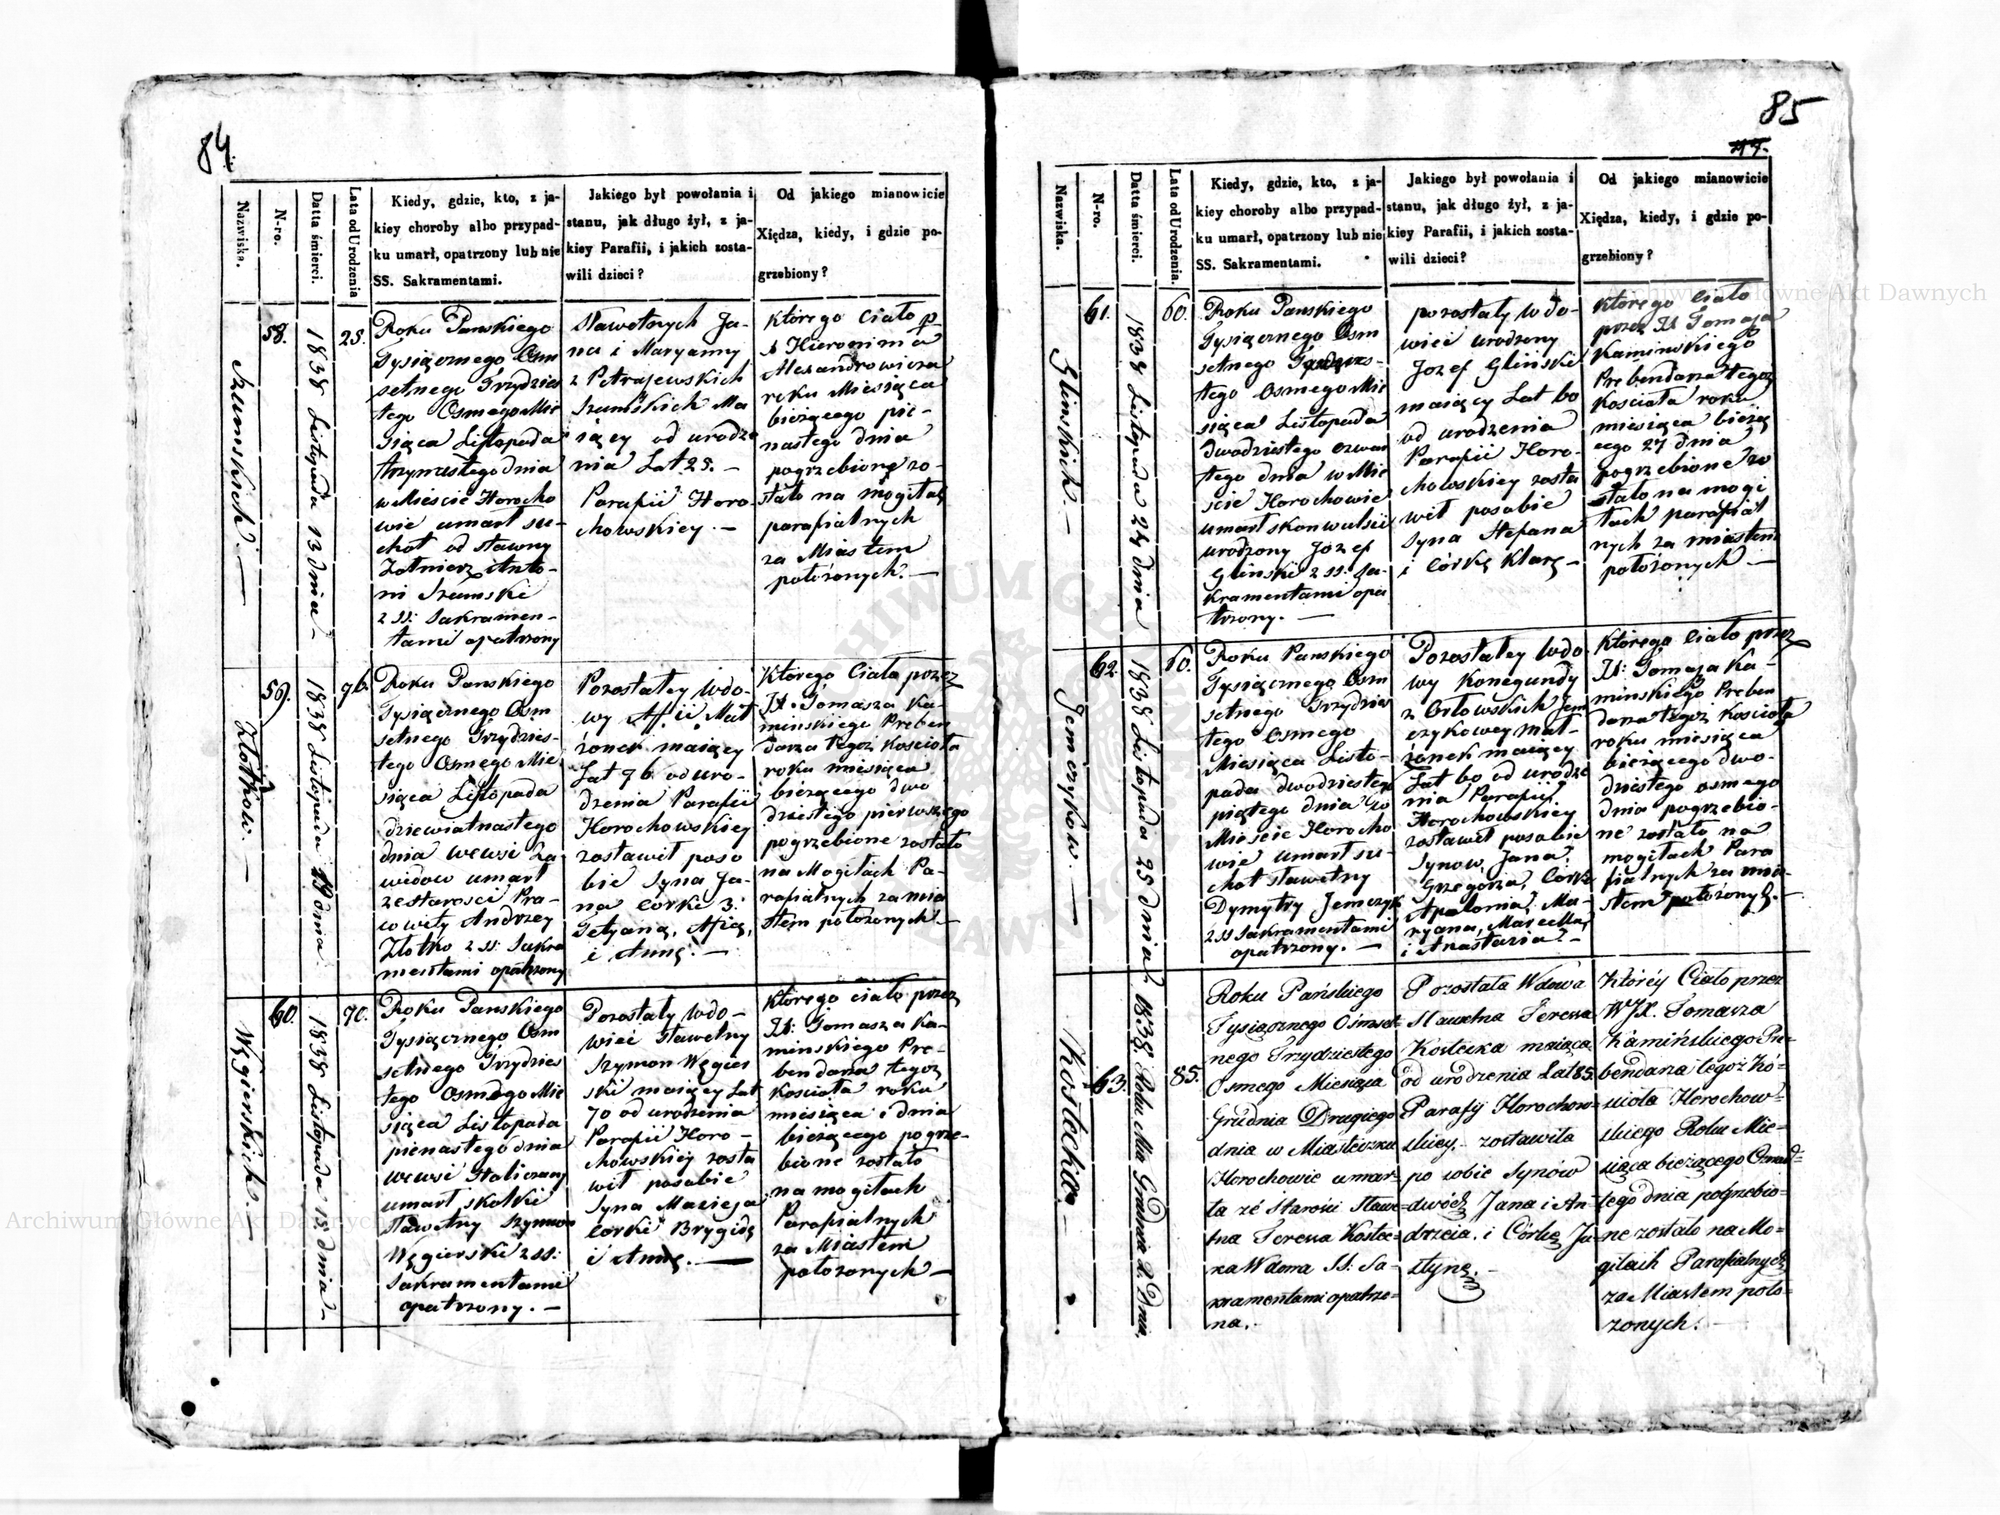 84.
Nazwiska.
N-ro.
Datta śmierci.
Lata od Urodzenia
Kiedy, gdzie, kto, z ja-
kiey choroby albo przypad-
ku umarł, opatrzony lub nie
SS. Sakramentami.
Jakiego był powołania i
stanu, jak długo żył, z ja-
kiey Parafii, i jakich zosta-
wili dzieci?
Od jakiego mianowicie
Xiędza, kiedy, i gdzie po-
grzebiony?
Szumskich. —
58.
1838 Listopada 13 dnia —
25.
Roku Panskiego
Tysiącznego Osm
setnego Trzydzies
tego Osmego Mie
siąca Listopada
trzynastego dnia
w Mieście Horocho
wie umarł su-
chot od stawny
Zołnierz Anto-
ni Szumski
z SS: Sakramen-
tami opatrzony
Stawetnych Ja-
na i Maryanny
z Petrajewskich
Szumskich Ma
iący od urodze
nia Lat 25. —
Parafii Horo-
chowskiey. —
Którego Ciało p
Hieronima
Alexandrowicza
roku Miesiąca
bieżącego pie-
nastego dnia
pogrzebione zo-
stało na mogiłach
parafialnych
za Miastem
położonych. —
Złotków. —
59.
1838 Listopada 19 dnia.
96.
Roku Panskiego
Tysiącznego Osm
setnego Trzydzies-
tego Osmego Mie
siąca Listopada
dziewiatnastego
dnia wewsi Za
widow umarł
ze starosci Pra-
cowity Andrzey
Złotko z SS: Sakra
mentami opatrzony
Pozostałey wdo-
wy Afii Mał
żonek maiący
Lat 96 od uro-
dzenia Parafii
Horochowskiey
zostawił poso
bie Syna Ja-
na Corki 3:
Tetyanę, Afię,
i Annę. —
Którego Ciało przez
X. Tomasza Ka-
minskiego Preben
darza tegoż Kościoła
roku miesiąca
bieżącego dwó
dziestego pierwszego
pogrzebione zostało
na Mogiłach Pa-
rafialnych za mia
stem położonych —
Węgierskich. —
60.
1838 Listopada 15 dnia —
70.
Roku Panskiego
Tysiącznego Osm
setnego Trzydzies
tego Osmego Mie
siąca Listopada
pienastego dnia
wewsi Haliczany
umarł skolki
stawetny Szymon
Węgierski z SS:
Sakramentami
opatrzony. —
Pozostały Wdo-
wiec stawetny
Szymon Węgier
ski maiący Lat
70 od urodzenia
Parafii Horo-
chowskiey zosta
wił posobie
Syna Macieja
Corki Brygidę
i Annę. —
Którego ciało przez
X: Tomasza Ka-
minskiego Pre-
bendarza tegoż
Kościoła roku
miesiąca i dnia
bieżącego pogrze-
bione zostało
na mogiłach
Parafialnych
za Miastem
położonych —
85
47.
Nazwiska.
N-ro.
Datta śmierci.
Lata od Urodzenia.
Kiedy, gdzie, kto, z ja-
kiey choroby albo przypad-
ku umarł, opatrzony lub nie
SS. Sakramentami.
Jakiego był powołania i
stanu, jak długo żył, z ja-
kiey Parafii, i jakich zosta-
wili dzieci?
Od jakiego mianowicie
Xiędza, kiedy, i gdzie po-
grzebiony?
Glinskich. —
61.
1838 Listopada 24 dnia
60.
Roku Panskiego
Tysiącznego Osm
setnego
tego Osmego Mie
siąca Listopada
dwodziestego czwar
tego dnia w Mie
ście Horochowie
umarł skonwulsii
urodzony Jozef
Glinski z SS: Sa-
kramentami opa
trzony. —
pozostały Wdo-
wiec urodzony
Jozef Gliński
maiący Lat 60
od urodzenia
Parafii Horo-
chowskiey zosta
wił posobie
Syna Stefana
i Córkę Klarę —
Którego Ciało
przez X Tomasza
Kaminskiego
Prebendarza tegoż
Kościoła roku
miesiąca bieżą
cego 27 dnia
pogrzebione zo
stało na mogi
łach parafial
nych za miastem
położonych —
Jemczyków. —
62.
1838 Listopada 25 dnia
60.
Roku Panskiego
Tysiącznego Osm
setnego Trzydzies
tego Osmego
Miesiąca Listo-
pada dwodziestego
piątego dnia w
Mieście Horocho
wie umarł su-
chot stawetny
Dymytry Jemczyk
z SS Sakramentami
opatrzony. —
Pozostałey Wdo
wy Konegundy
z Orłowskich Jem
czykowey Mał-
żonek maiący
Lat 60 od urodze
nia Parafii
Horochowskiey
zostawił posobie
Synow, Jana,
Grzegorza, Córki
Apolonią, Ma-
ryana, Marcella,
i Anastazia. —
Którego Ciało przez
X: Tomasza Ka-
minskiego Preben
darza tegoż Kościoła
roku miesiąca
bieżącego dwo-
dziestego osmego
dnia pogrzebio-
ne zostało na
mogiłach Para
fialnych za mia
stem położonych. —
Kostecka —
63.
1838 Roku Mca Grudnia 2. Dnia.
85.
Roku Pańskiego
Tysiącznego Ośmset-
nego Trzydziestego
Osmego Miesiąca
Grudnia Drugiego
dnia w Miasteczku
Horochowie umar-
ła ze Starości Stawe-
tna Teressa Kostec-
ka Wdowa SS: Sa-
kramentami opatrzo-
na. —
Pozostała Wdowa
Stawetna Teressa
Kostecka maiąca
od urodzenia Lat 85.
Parafij Horochow-
skiey. zostawiła
po sobie Synów
dwóch Jana i An-
drzeia. i Córkę Ju
stynę. —
Którey Ciało przez
WJX. Tomasza
Kamińskiego Pre-
bendarza tegoż Ko-
ścioła Horochow-
skiego Roku Mie-
siąca bieżącego Czwar-
tego dnia pogrzebio-
ne zostało na Mo-
giłach Parafialnych
za Miastem poło-
żonych. —